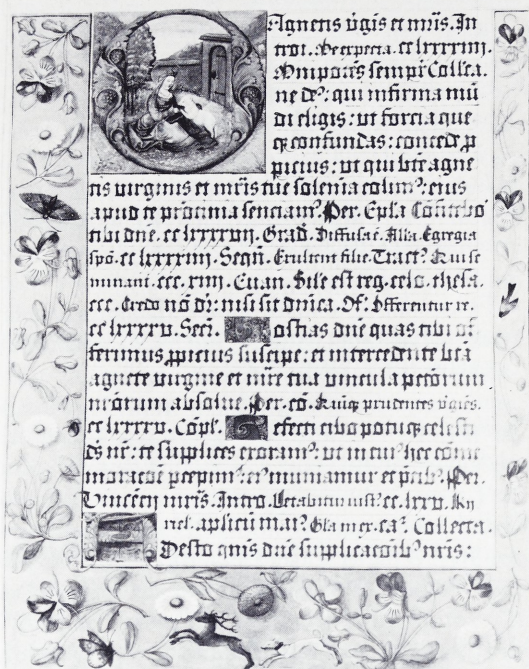 Agnetis v̄gīs et mr̄is. In
troi. Me expecta. cc lxxxiiij.
Omnipot̄s sempit̄ Collca.
ne d̄s: qui infirma mū
di eligis: ut forcia que
q̄ confundas: concede p̄
picius: ut qui btē agne
tis virginis et mr̄is tue solēnia colim9: eius
apud te p̄trocinia senciam9. Per. Ep̄la Confitebo
tibi dn̄e. cc lxxxvij. Grad̄. Diffusa ē. Alla. Egregia
spō. cc lxxxiiij. Seqn̄. Exulcent filie. Tract9. Qui se
minant. ccc. xiiij. Euan. Sile est reg. celo. thesa.
ccc. Credo nō dr̄: nisi sit dn̄ica. Of. Offerentur re.
cc lxxxv. Secr̄. Hostias dn̄e quas tibi of
ferimus p̄picius suscipe: et intercedente bt̄a
agnete virgine et mr̄e tua vincula peccatorum
nr̄orum absolue. Per. cō. Quinq̄ prudentes v̄gīes.
cc lxxxv. Cōpl. Refecti cibo potuq̄ celesti
d̄s nr̄: te supplices exoram9: ut in cui9 hec cōme
moracōe p̄cepim9: ei9 muniamur et p̄cib9. Per.
Vincentij mr̄is. Intro. Letabitur iust9. cc. lxxv. In
nel. aplicii m. ut9 Gla in ex. ca9. Collecta.
Adesto quis dn̄e supplicacōib9 nr̄is: